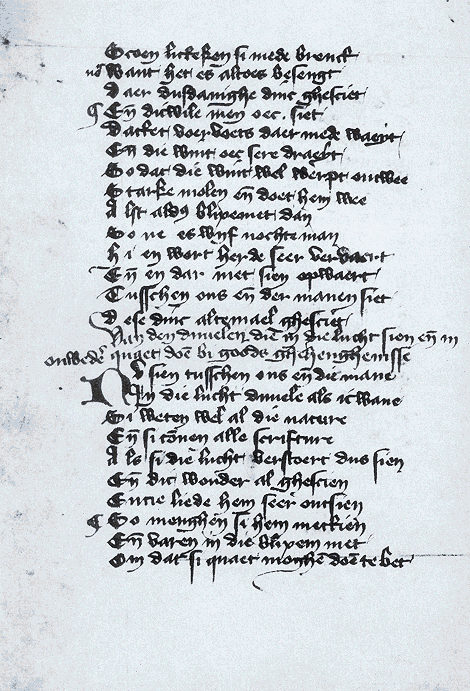 Groen lickeken si mede brenct
Want het es altoes besengt
Daer dusdanighe dinc ghesciet
¶ Eñ dicwile men oec siet
Dattet doer voets daer mede waeyt
Eñ die wint oec sere draeyt
So dat die wint wel werpt ontwee
Starke molen eñ doet hem wee
Alst aldus blixemet dan
So ne es wijf noch te man
Hi en wort herde seer vervaert
Eñ en dar niet sien opwaert
Tusschen ons eñ der manen siet
Dese dinc altemael ghesciet
Van den duvelen die in die lucht sien eñ in
onwedere quaet doen bi goods ghehenghenisse
Nv sien tusschen ons eñ die mane
In die lucht duvele als ic wane
Si weten wel al die nature
Eñ si connen alle scrifture
Als si die lucht verstoert dus sien
Eñ dit wonder al ghescien
Entie liede hem seer ontsien
¶ So menghen si hem mettien
Eñ varen in die blixem met
Om dat si quaet moghen doen te bet